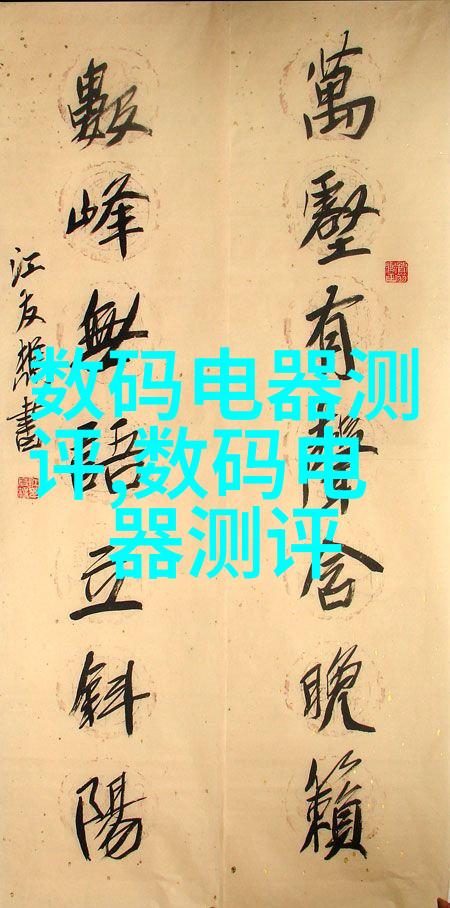 萬壑有聲含晚籟
數峰無語立斜陽
江友樵書
数码电器测
评,数码电
器测评